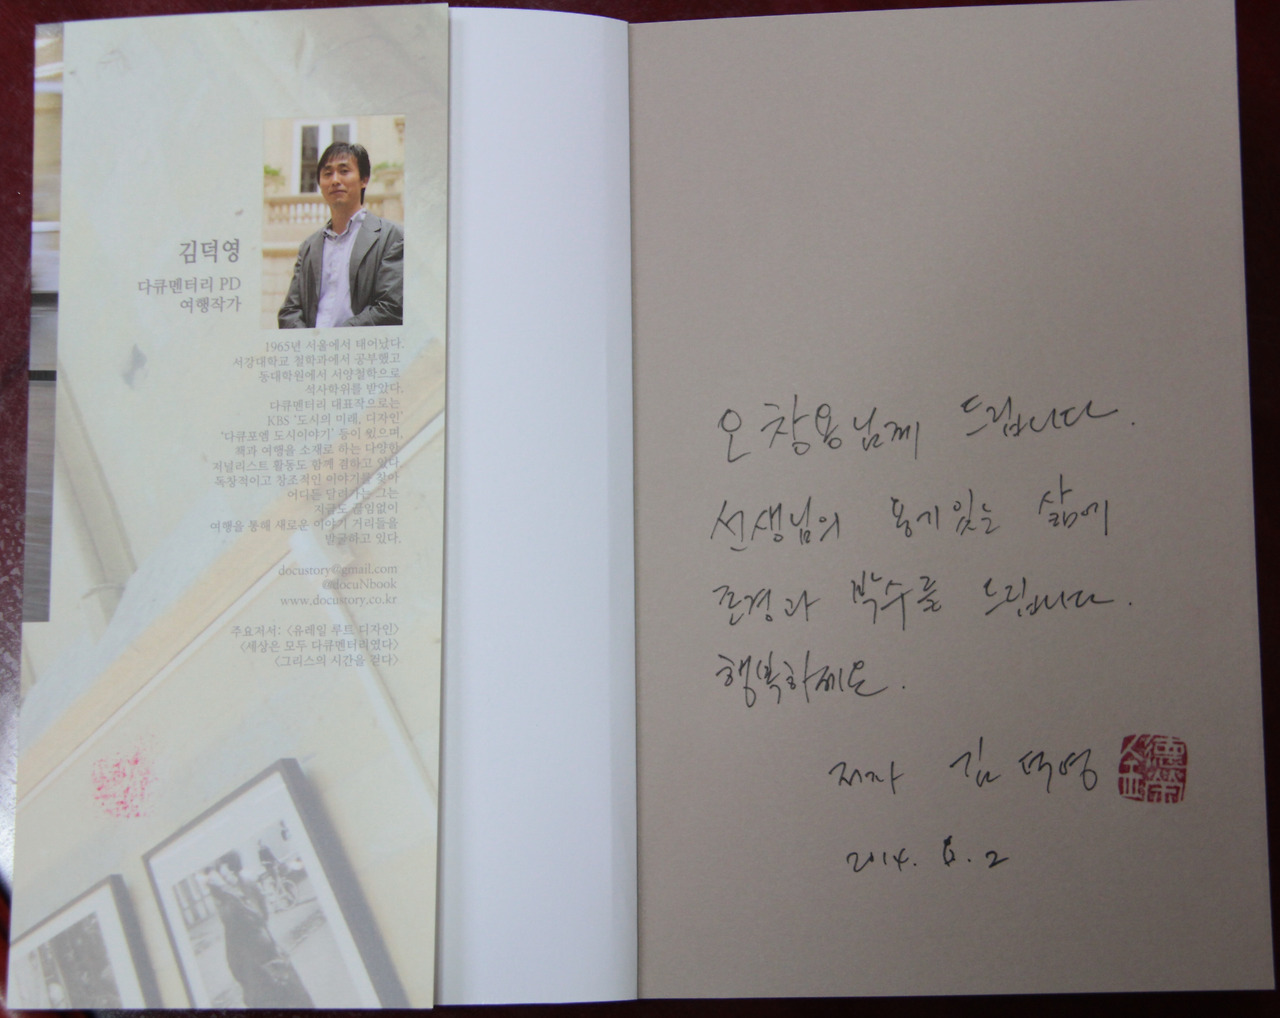 김덕영
다큐멘터리 PD
여행작가
1965년 서울에서 태어났다.
서강대학교 철학과에서 공부했고
동대학원에서 서양철학으로
석사학위를 받았다.
다큐멘터리 대표작으로는
KBS '도시의 미래, 디자인'
'다큐포엠 도시이야기' 등이 있으며,
책과 여행을 소재로 하는 다양한
저널리스트 활동도 함께 겸하고 있다.
독창적이고 창조적인 이야기를 찾아
어디든 달려가는 그는
지금도 끊임없이
여행을 통해 새로운 이야기 거리들을
발굴하고 있다.
docustory@gmail.com
@docuNbook
www.docustory.co.kr
주요저서: <유레일 루트 디자인>
<세상은 모두 다큐멘터리였다>
<그리스의 시간을 걷다>
오창용님께 드립니다.
선생님의 용기있는 삶에
존경과 박수를 드립니다.
행복하세요.
저자 김덕영
金德榮
2014. 6. 2